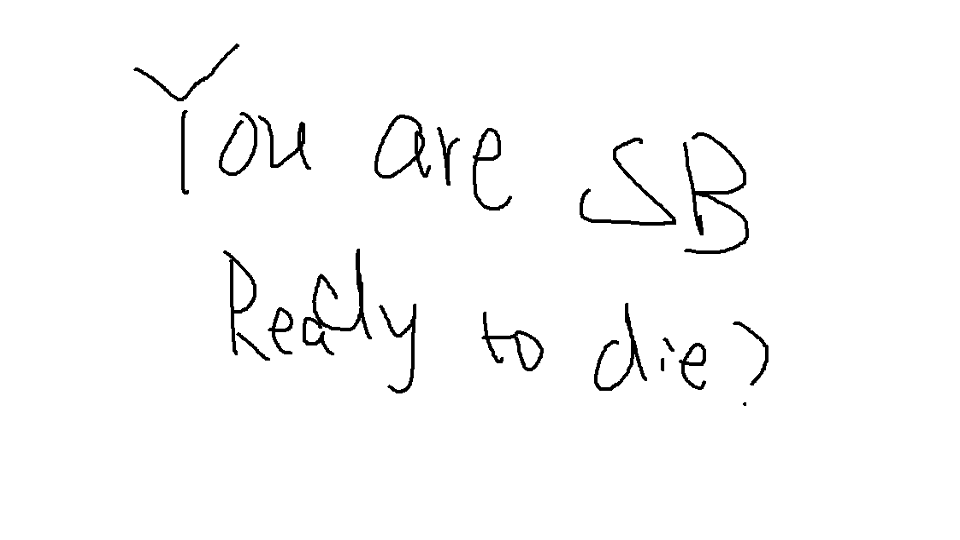 You are SB
Ready to die?